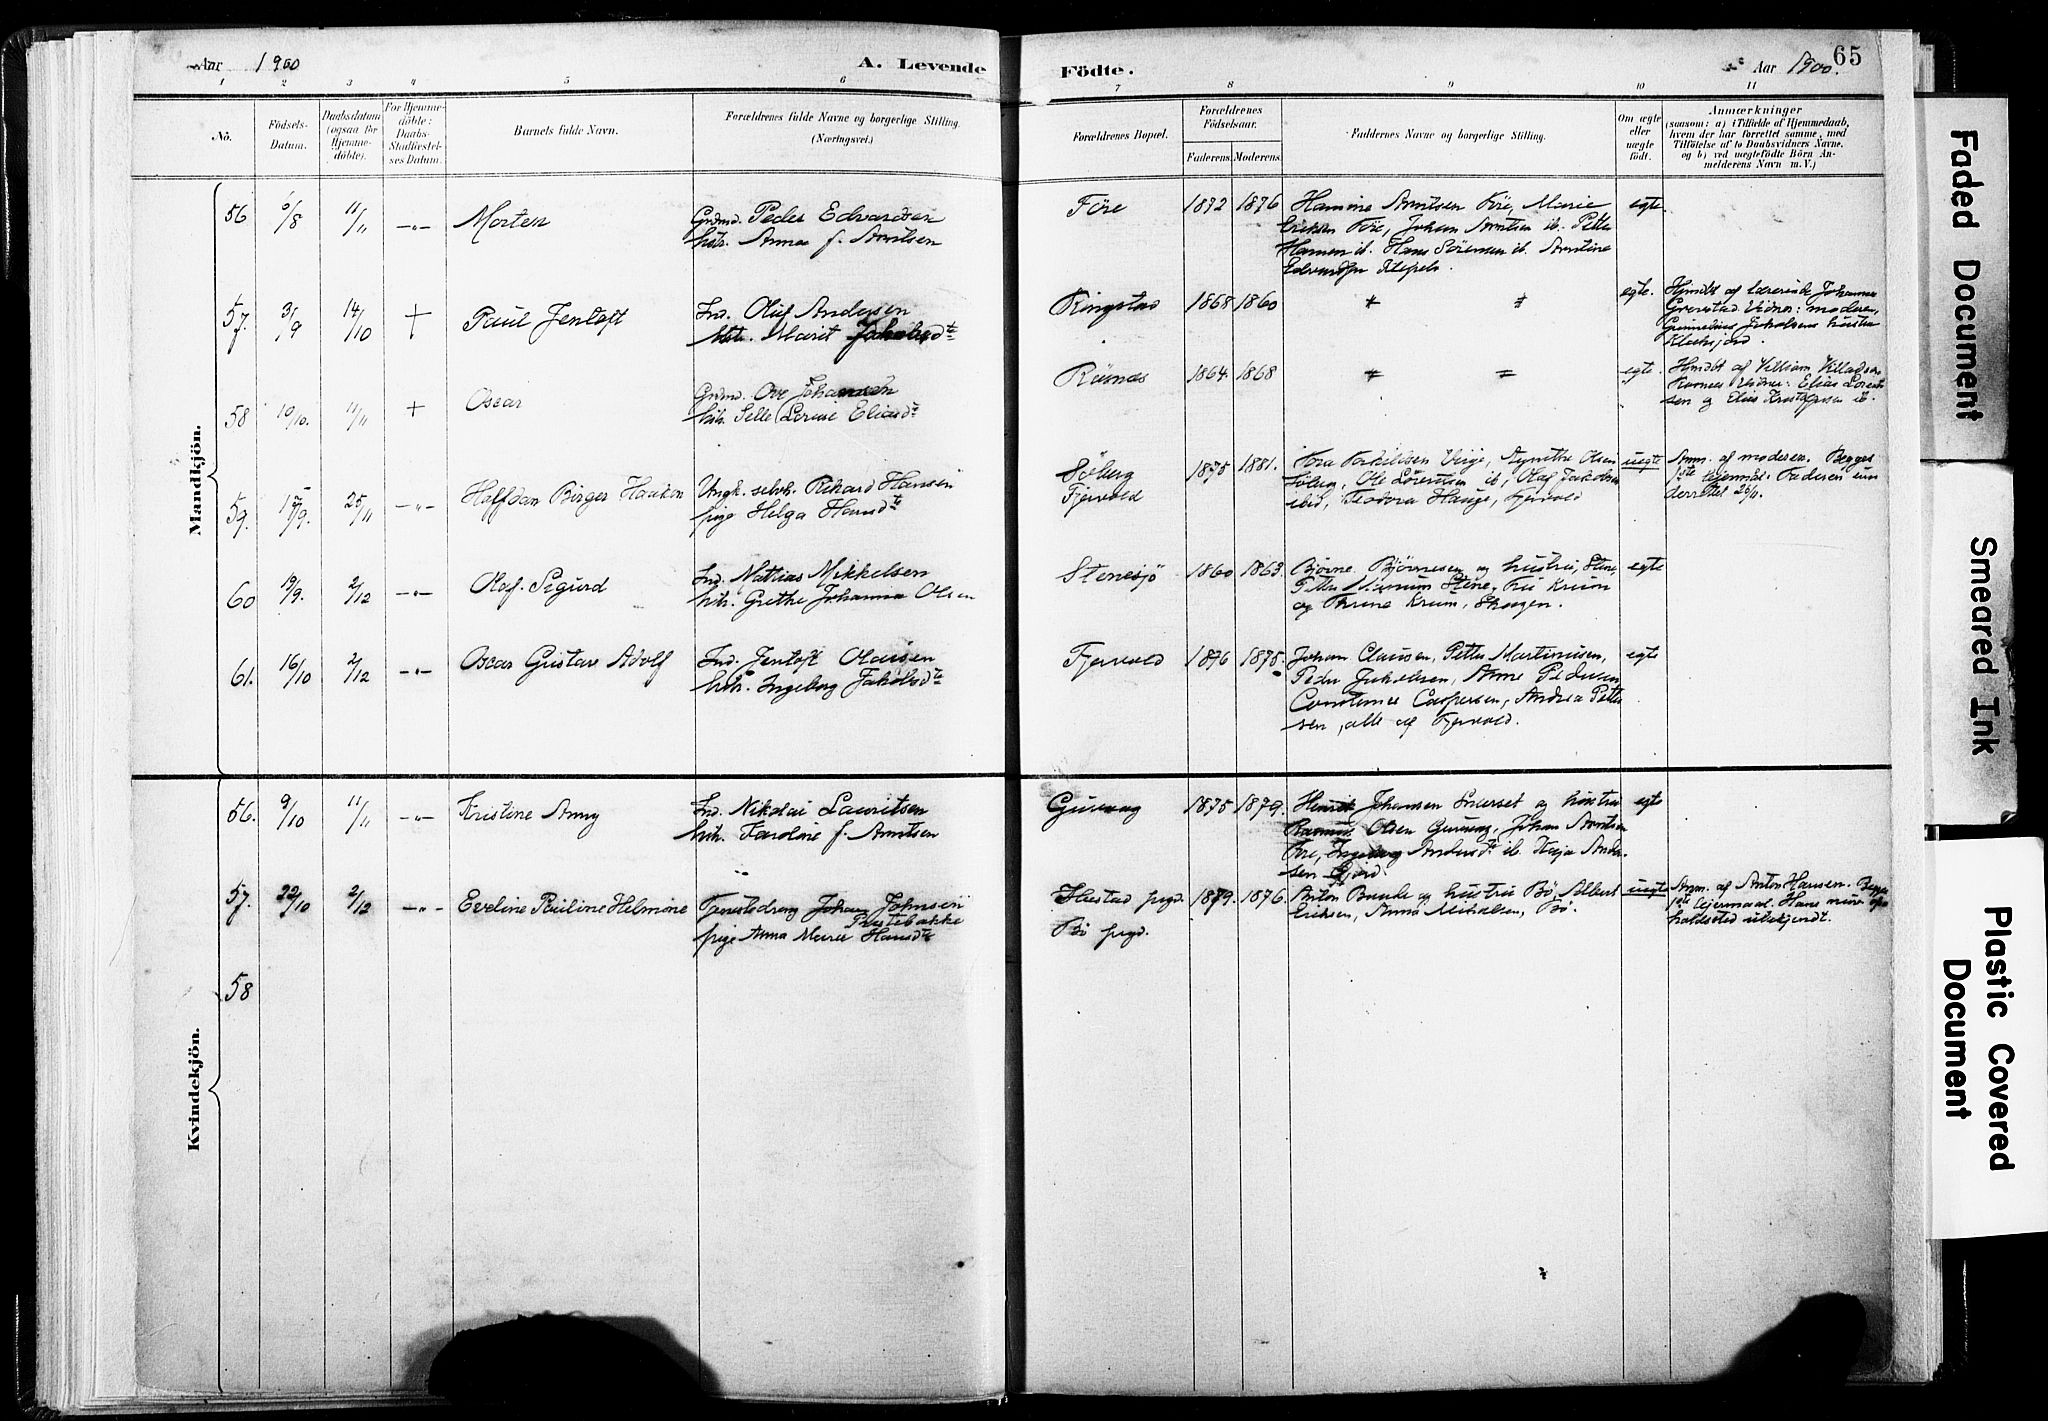 Aar 1900
A. Levende
Födte.
Aar 1900.
65
1 2 3 4 5 6 7 8 9 10 11
Nö.
Födsels-
Datum.
Daabsdatum
(ogsaa for
Hjemme-
döbte).
For Hjemme-
döbte:
Daabs-
Stadfæstel-
ses Datum.
Barnets fulde Navn.
Forældrenes fulde Navne og borgerlige Stilling.
(Næringsvei.)
Forældrenes Bopæl.
Forældrenes
Födselsaar.
Faderens.
Moderens.
Faddernes Navne og borgerlige Stilling.
Om ægte
eller
uægte
födt.
Anmærkninger
(saasom: a) i Tilfælde af Hjemmedaab,
hvem der har forrettet samme, med
Tilföielse af to Daabsvidners Navne,
og b) ved uægtefödte Börn An-
melderens Navn m. V.)
Mandkjön.
56 /8 11/11 -"- Morten
Grdmd. Peder Edvardsen
hstr. Anna f. Arntsen
Före 1872 1876
Arntsen Före, Marie
Eriksen Före, Johan Arntsen ib. Petter
Hansen ib. Hans Sörensen ib. Arntine
egte
57. 3/9 14/10 + Paul Jentoft
Ind. Oluf Andersen
hstr. Marit
Ringstad 1868 1860
egte.
Hjmdbt af lærerinde Johanna
Vidner: moderen,
Jakobsens hustru
58 10/10. 11/11 + Oscar
Grdmd. Ove Johansen
hstr. Selle Lovise Eliasdt
Risnes 1864 1868
egte.
Hjmdbt af Villiam
Vidner: Elias Lorent
sen og
59. 15/9. 25/11 -"- Halfdan Birger Haakon
Ungk. selvh. Rikard Hansen
pige Helga Hansdt
Söberg
Fjærvold
1875 1881.
Olsen
Söberg, Ole Lorentsen ib, Olaf Jakobsen
ibid, Teodora Hauge, Fjærvold
uegte
Anm. af moderen. Begges
1ste leiermaal. Faderen un
derrettet 25/11.
60 19/9. 2/12 -"- Olaf Sigurd
Ind. Mathias Mikkelsen
hstr. Grethe Johanna Olsen
Stenesjö 1860 1863.
Bjarne Björnsen og hustru, Stene,
Stene, Fru Krum
og Krum, Skagen.
egte
61. 16/10 2/12 -"- Oscar Gustav Adolf
Ind. Jentoft Olausen
hstr. Ingeborg Jakobsdt
Fjærvold 1876 1875.
Johan Clausen, Petter Martinusen,
Peder Jakobsen, Anne Pedersen
Caspersen, Andrea Petter
sen, alle af Fjærvold.
egte
Kvindekjön.
56. 9/10 11/11 -"- Kristine Anny
Ind. Nikolai Lauritsen
hstr. Karoline f. Arntsen
1875 1879.
Henrik Johansen og hustru
Rasmus Olsen Johan Arntsen
Före, Ingeborg Andersdt ib. Kaja Ander-
sen Gjord.
egte
57. 22/10 2/12 -"- Eveline Pauline Helmine
Tjenestedreng Johan Johnsen
Prestebakke
pige Anna Marie Hansdt
prgd.
Bö prgd.
1879. 1876.
Anton og hustru Bö Albert
Eriksen, Anna Mikalsen, Bö.
uegte
Anm. af Anton Hansen. Begges
1ste leiermaal. Hans op
holdssted ubekjendt.
58
Faded Document
Smeared Ink
Plastic Covered
Document